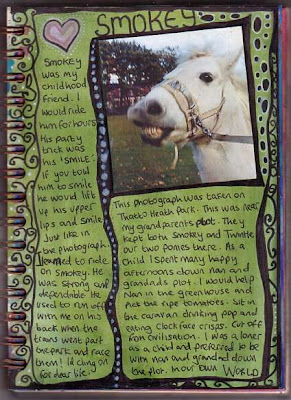 SMOKEY
Smokey
was my
childhood
friend. I
would ride
him for hours
His party
trick was
his 'SMILE'.
If you told
him to smile
he would lift
up his upper
lips and smile
Just like in
the photograph.
I learned to ride
on Smokey. He
was strong and
dependable. He
used to run
with me on his
back when the
trains went past
the park and race
them! I'd cling on
for dear life.
This photograph was taken on
Thatto Heath Park. This was near
my grandparents plot. They
kept both Smokey and Twinkle
our two ponies there. As a
child I spent many happy
afternoons down nan and
grandad's plot. I would help
Nan in the greenhouse and
pick the ripe tomatoes. Sit in
the caravan drinking pop and
eating Clock face crisps. Cut off
from civilisation. I was a loner
as a child and preferred to be
with nan and grandad down
the plot. In our own WORLD